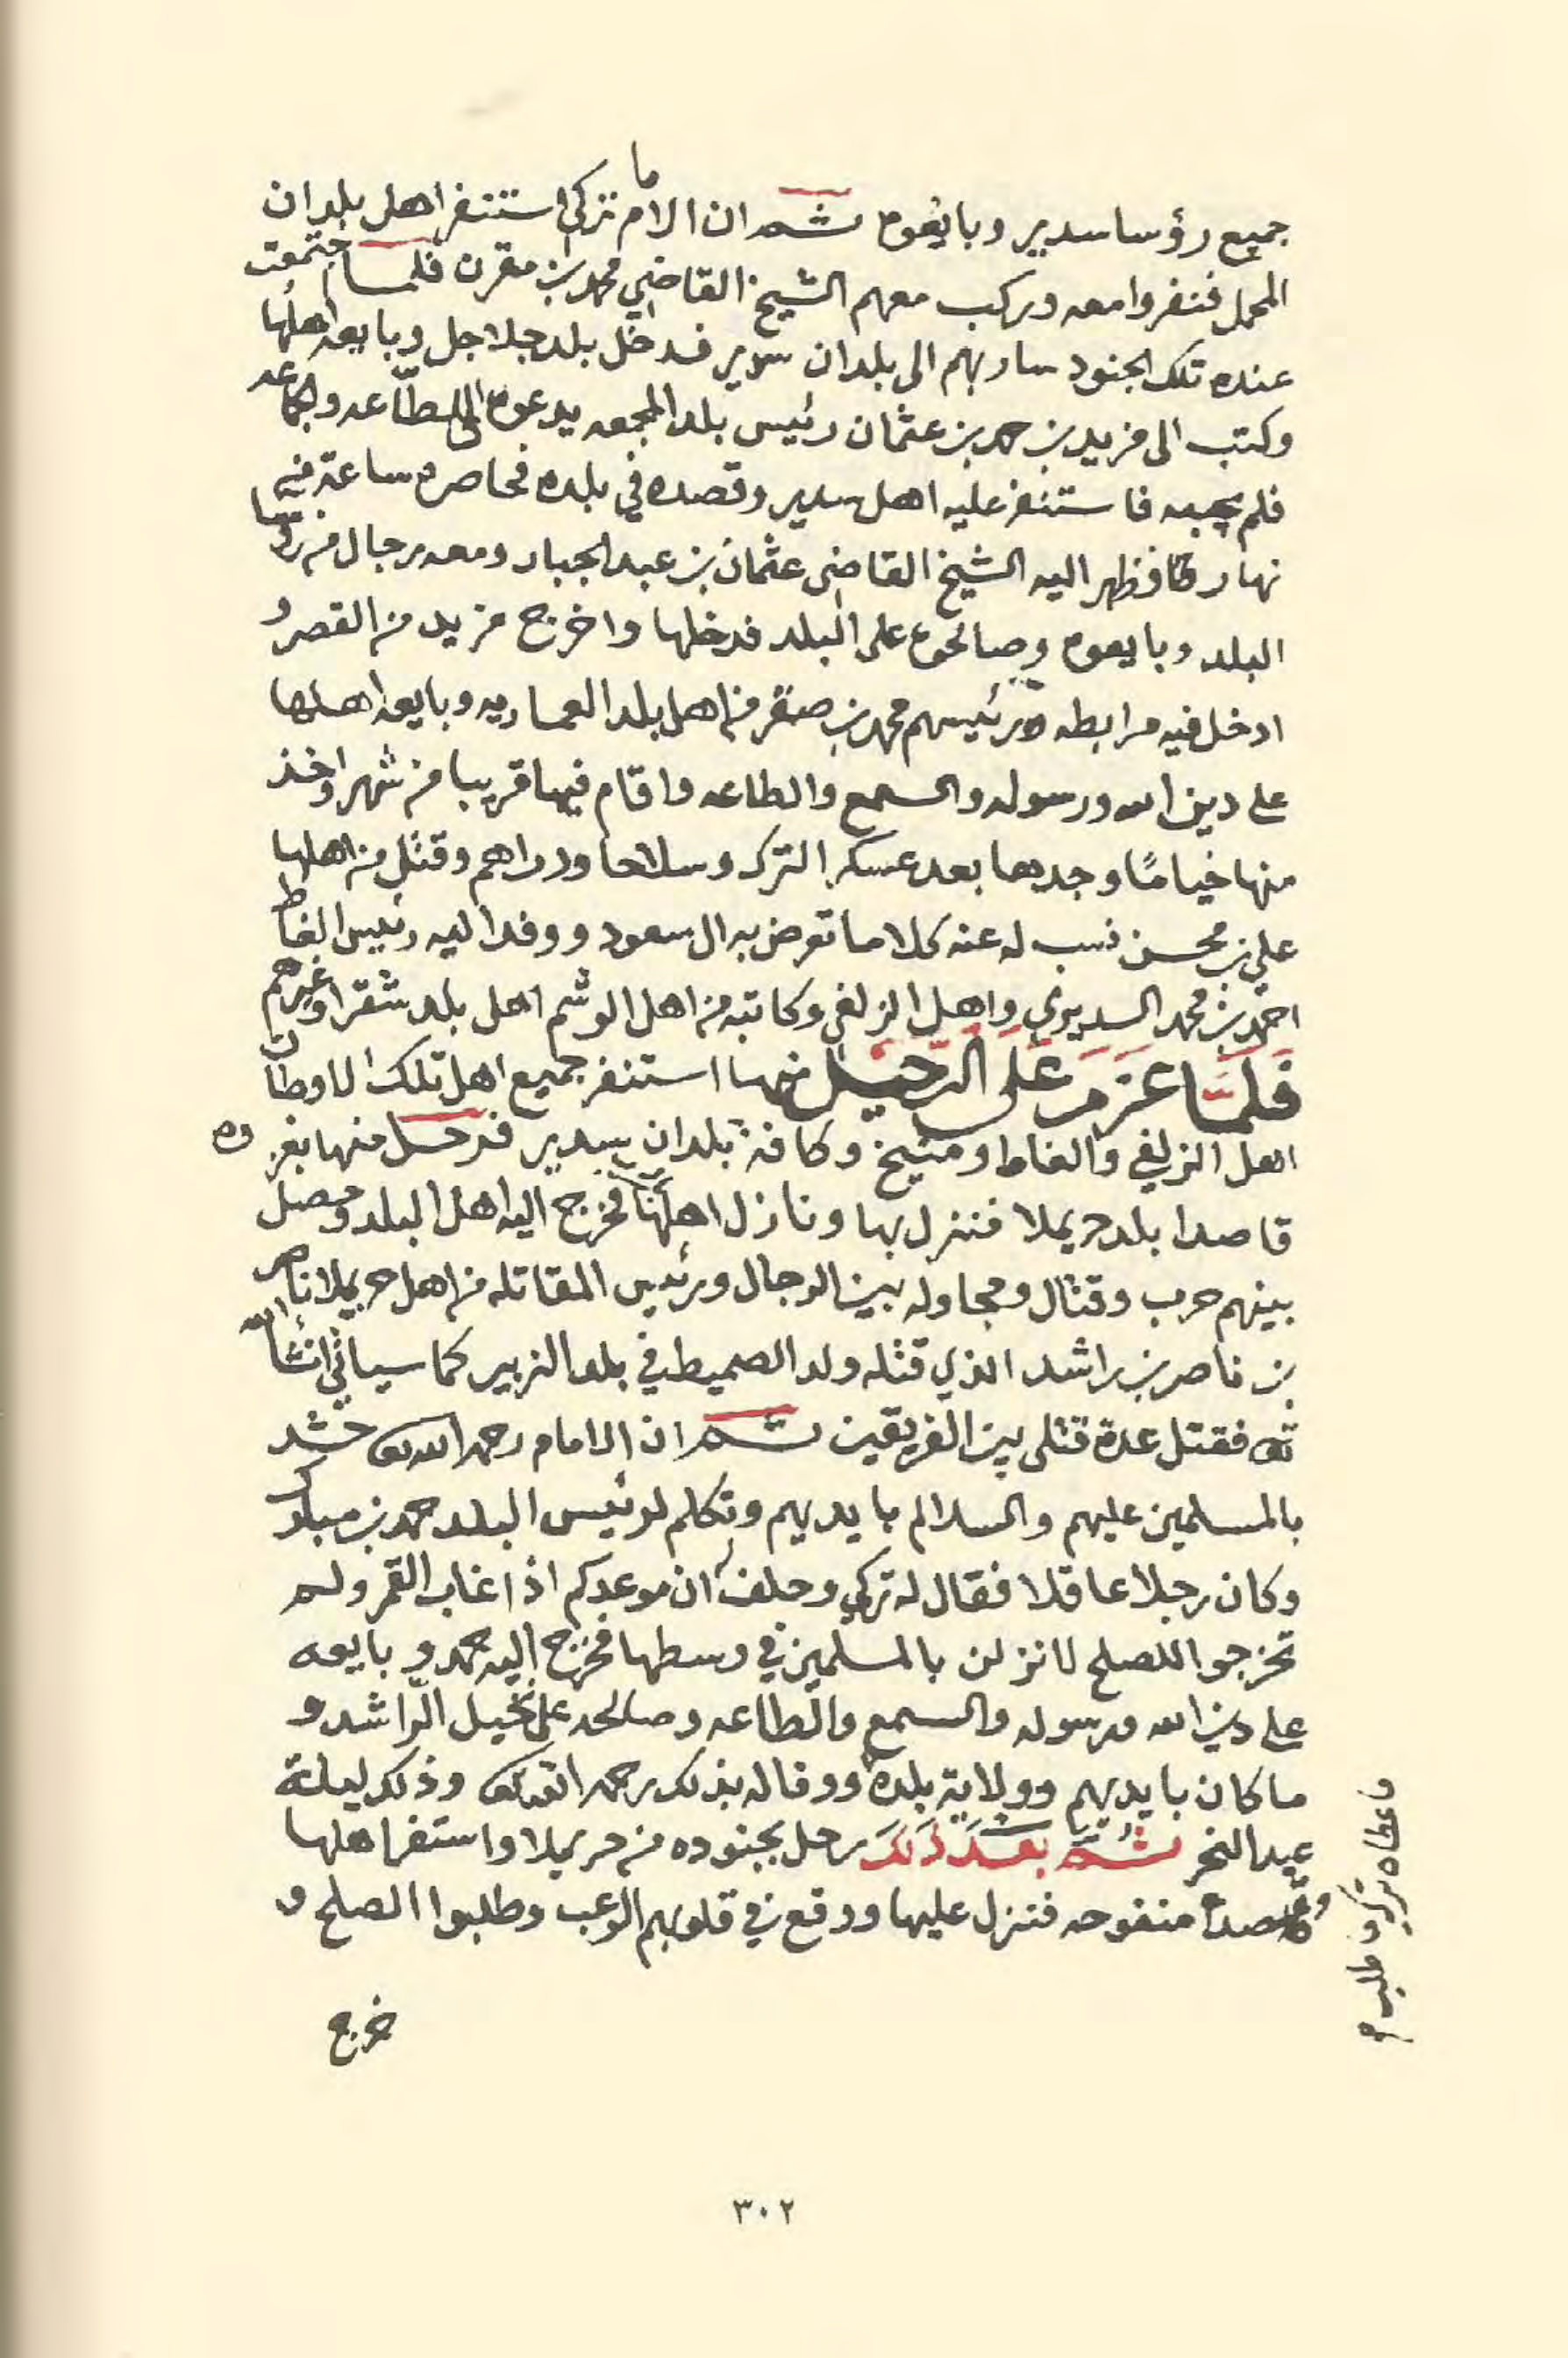 جميع رؤسا سدير وبايعوه ثم ان الامام تركي استنفر اهل بلدان
المحمل فنفروا معه وركب معهم الشيخ القاضي محمد بن مقرن فلما اجتمعت
عنده تلك الجنود سار بهم الى بلدان سدير فدخل بلد جلاجل وبايعه اهلها
وكتب الى مزيد بن حمد بن عثمان رئيس بلد المجمعه يدعوه الى الطاعه والجماعه
فلم يجبه فاستنفر عليه اهل سدير وقصده في بلده فحاصره ساعة من
نهار فظهر اليه الشيخ القاضي عثمان بن عبد الجبار ومعه رجال من رؤسا
البلد وبايعوه وصالحوه على البلد فدخلها واخرج مزيد من القصر و
ادخل فيه مرابطه ورئيسهم محمد بن صقر من اهل بلد العماريه وبايعه اهلها
على دين الله ورسوله والسمع والطاعه واقام فيها قريبا من شهر واخذ
منها خياما وجدها بعد عسكر الترك وسلاحا ودراهم وقتل من اهلها
علي بن محسن نسب له عنه كلاما تعرض به ال سعود ووفد اليه رئيس الغاط
احمد بن محمد السديري واهل الزلفي وكاتبه من اهل الوشم اهل بلد شقرا وغيرهم
فَلَمَّا عَزَمَ عَلَى الرَّحِيل منها استنفر جميع اهل تلك الاوطان
اهل الزلفي والغاط ومنيخ وكافة بلدان سدير فرحل منها بغزوه
قاصدا بلد حريملا فنزل بها ونازل اهلها فخرج اليه اهل البلد وحصل
بينهم حرب وقتال ومجاوله بين الرجال ورئيس المقاتله من اهل حريملا ناصر
بن ناصر بن راشد الذي قتله ولد الصميط في بلد الزبير كما سياتي انشأ الله
تعالى فقتل عدة قتلى بين الفريقين ثم ان الامام رحمه الله تعالى حشد
بالمسلمين عليهم والسلالم بايديهم وتكلم لرئيس البلد حمد بن مبارك
وكان رجلا عاقلا فقال له تركي وحلف ان موعدكم اذا غاب القمر ولم
تخرجوا للصلح لانزلن بالمسلمين في وسطها فخرج اليه حمد وبايعه
على دين الله ورسوله والسمع والطاعه وصالحه على نخيل الراشد و
ما كان بايديهم وولاية بلده ووفا له بذلك رحمه الله تعالى وذلك ليلة
عيد النحر ثُمَّ بَعْدَ ذَلِكَ رحل بجنوده من حريملا واستنفر اهلها
وقصد منفوحه فنزل عليها ووقع في قلوبهم الرعب وطلبوا الصلح و
فاعطاه تركي ما طلب
خرج
٣٠٢